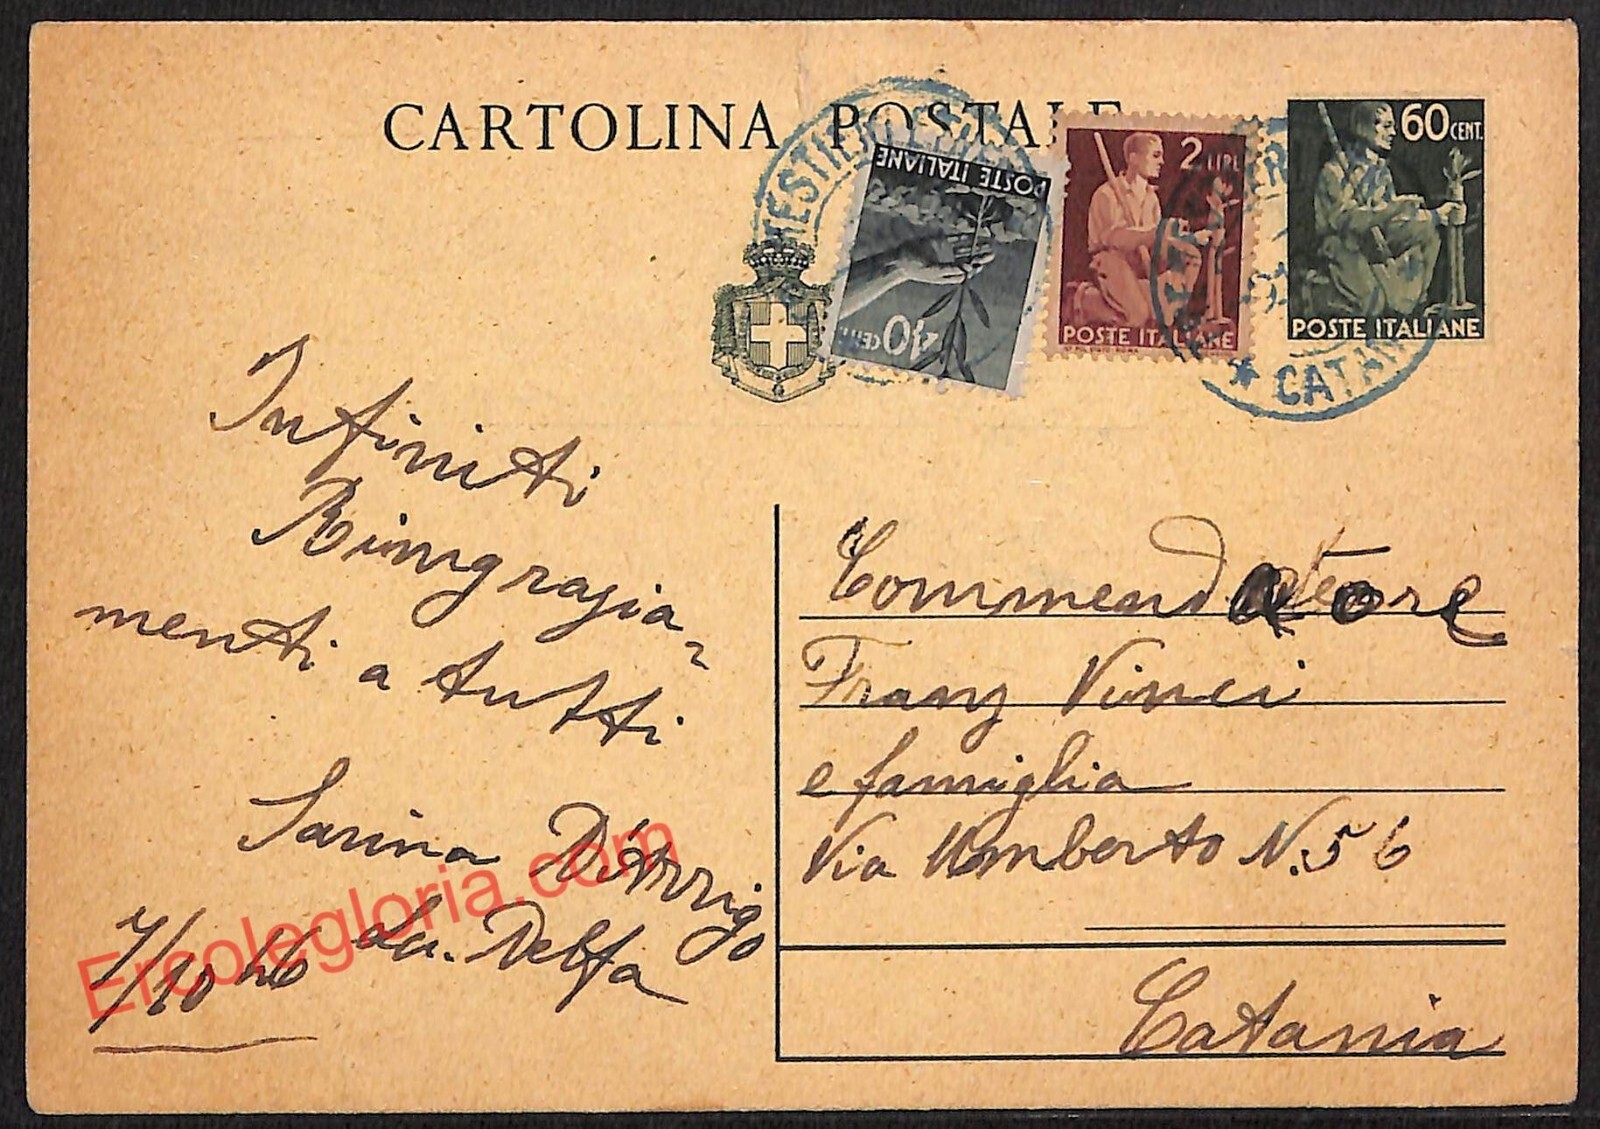 CARTOLINA POSTALE
POSTE ITALIANE
40 CENT.
2 LIRE
POSTE ITALIANE
60 CENT.
POSTE ITALIANE
* CATAN
Infiniti
Ringrazia-
menti a tutti
Sarina D'Arrigo
La Delfa
7/10 46
Commendatore
Franz Vinci
e famiglia
Via Umberto N. 56
Catania
Ercolegloria.com